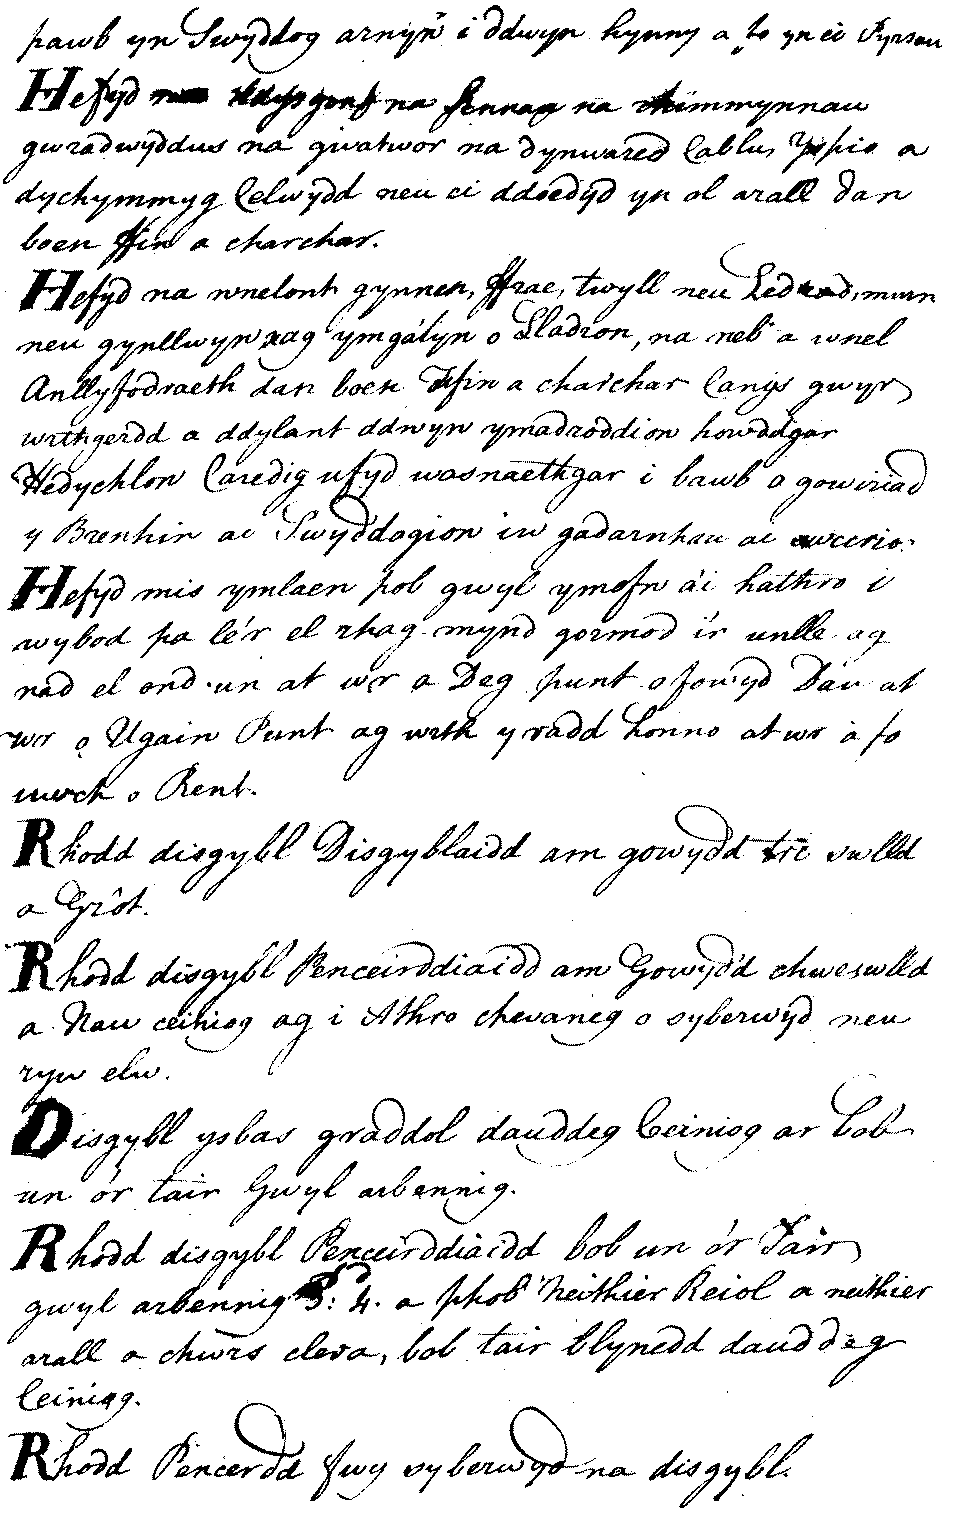 pawb yn Swyddog arnyn i ddwyn hynny a fo yn ei Pyrsau
Hefyd na ddysgont na sennag na
gwradwyddus na givatwor na dynwared Cablu, Yspio a
dychymmyg Celwydd neu ei ddoedyd yn ol arall dan
boen ffin a charchar.
Hefyd na wnelont gynnen, ffrae, twyll neu Ledrad, mwrn
neu gynllwyn nag ymgályn o Lladron, na neb a wnel
Anllyfodraeth dan boen ffin a charchar Canys gwyr
wrthgerdd a ddylant ddwyn ymadroddion howddgar
Hedychlon Caredig ufyd wasnaethgar i bawb o gowiriad
y Brenhin ac Swyddogion iw gadarnhau ac
Hefyd mis ymlaen pob gwyl ymofn a'i hathro i
wybod pa le'r el rhag mynd gormod i'r unlle ag
nad el ond un at wr o Deg punt o fowyd Dau at
wr o Ugain Punt ag wrth y radd honno at wr a fo
uwch o Rent.
Rhodd disgybl Disgyblaidd am gowydd tri swlld
a Grôt.
Rhodd disgybl Penceirddiaidd am Gowydd chweswlld
a Nau ceiniog ag i Athro chevaneg o syberwyd neu
ryw elw.
Disgybl ysbas graddol dauddeg Ceiniog ar bob
un o'r tair Gwyl arbennig.
Rhodd disgybl Penceirddiaidd bob un o'r Tair
gwyl arbennig 3: 4. a phob Neithier Reiol a neithier
arall a chwrs clera, bob tair blynedd dauddeg
Ceiniog.
Rhodd Pencerdd fwy syberwyd na disgybl.